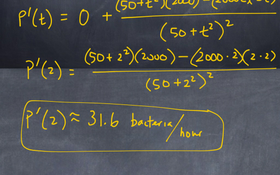 P'(t) = 0 + (50+t²)(2000) − (2000t)(2t) / (50+t²)²
P'(2) = (50+2²)(2000) − (2000·2)(2·2) / (50+2²)²
P'(2) ≈ 31.6 bacteria/hour